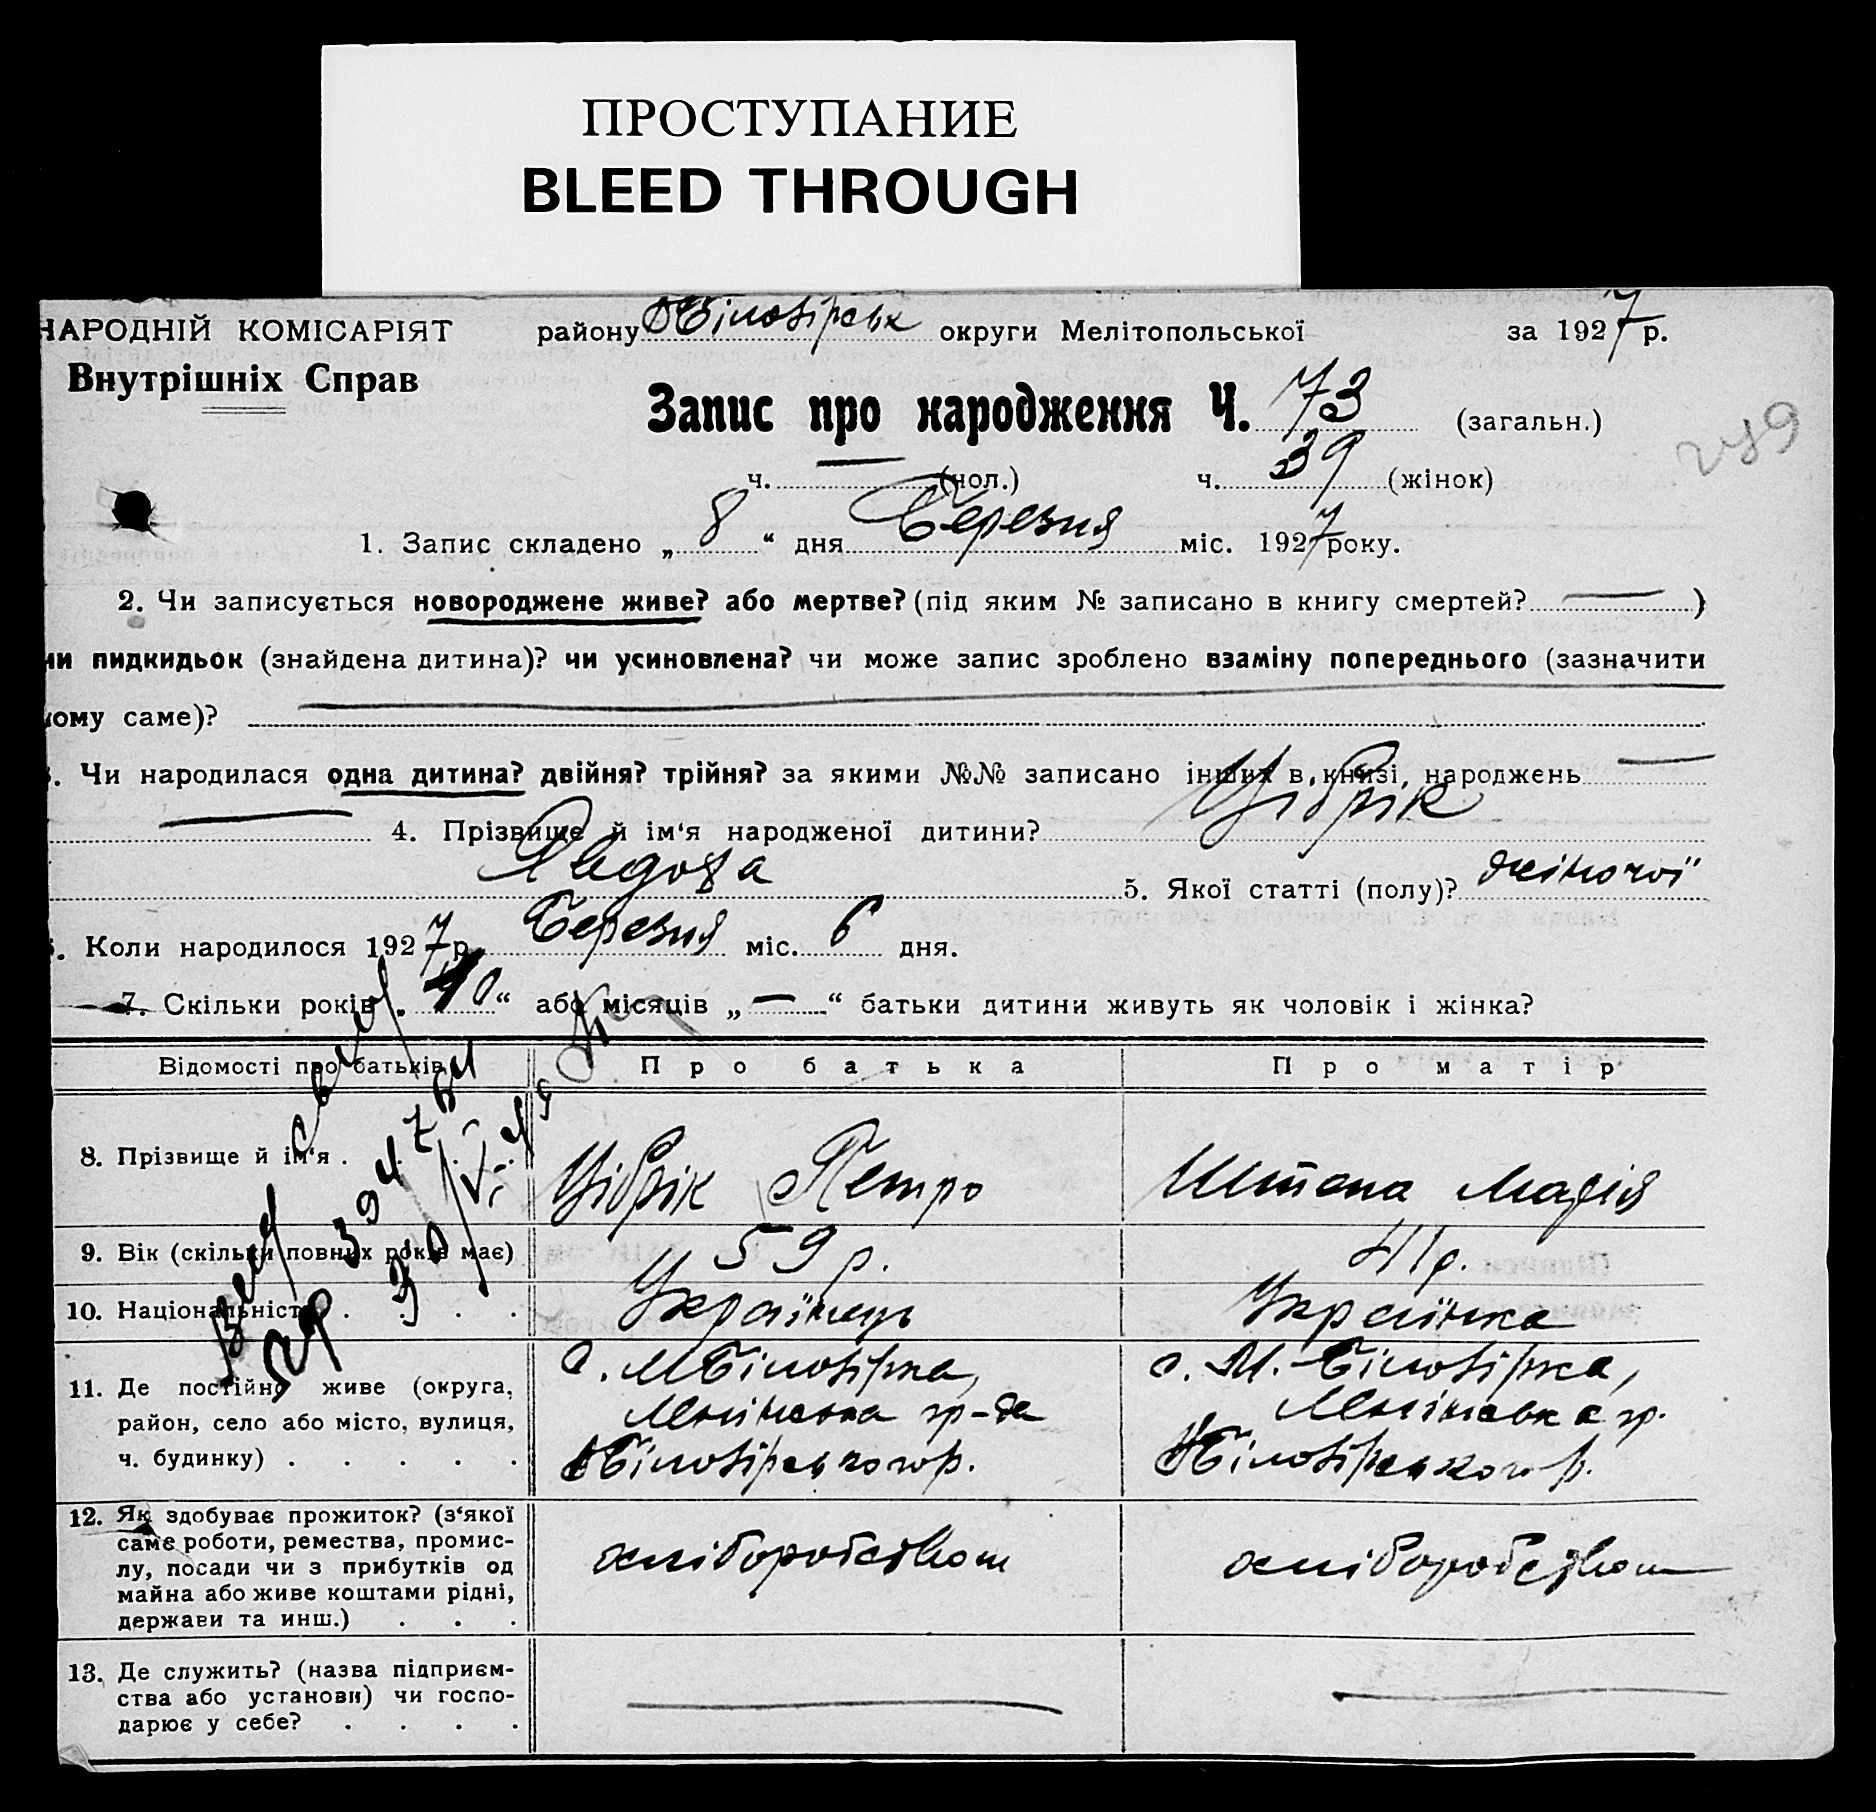 ПРОСТУПАНИЕ
BLEED THROUGH
НАРОДНІЙ КОМІСАРІЯТ району Білозірськ округи Мелітопольської за 1927 р.
Внутрішніх Справ
Запис про народження Ч. 73 (загальн.)
249
ч. — (чол.) ч. 39 (жінок)
1. Запис складено „ 8 “ дня Березня міс. 1927 року.
2. Чи записується новороджене живе? або мертве? (під яким № записано в книгу смертей? — )
чи пидкидьок (знайдена дитина)? чи усиновлена? чи може запис зроблено взаміну попереднього (зазначити
кому саме)?
3. Чи народилася одна дитина? двійня? трійня? за якими №№ записано інших в книзі народжень —
— 4. Прізвище й ім‘я народженої дитини? Цібрік
5. Якої статті (полу)? жіночої
6. Коли народилося 1927 р. Березня міс. 6 дня.
7. Скільки років „ 10 “ або місяців „ — “ батьки дитини живуть як чоловік і жінка?
Відомості про батьків Про батька Про матір
8. Прізвище й ім‘я . Цібрік Петро Марія
9. Вік (скільки повних років має) 59 р. 41 р.
10. Національність . . . . Українець Українка
11. Де постійно живе (округа, район, село або місто, вулиця, ч. будинку) . . . . .
с. М Білозірка,
гр-да
Білозірського р.
с. М. Білозірка,
гр.
Білозірського р.
12. Як здобуває прожиток? (з‘якої
саме роботи, ремества, промис-
лу, посади чи з прибутків од
майна або живе коштами рідні,
держави та инш.) . . .
хліборобством хліборобством
13. Де служить? (назва підприєм-
ства або установи) чи госпо-
дарює у себе? . . . .